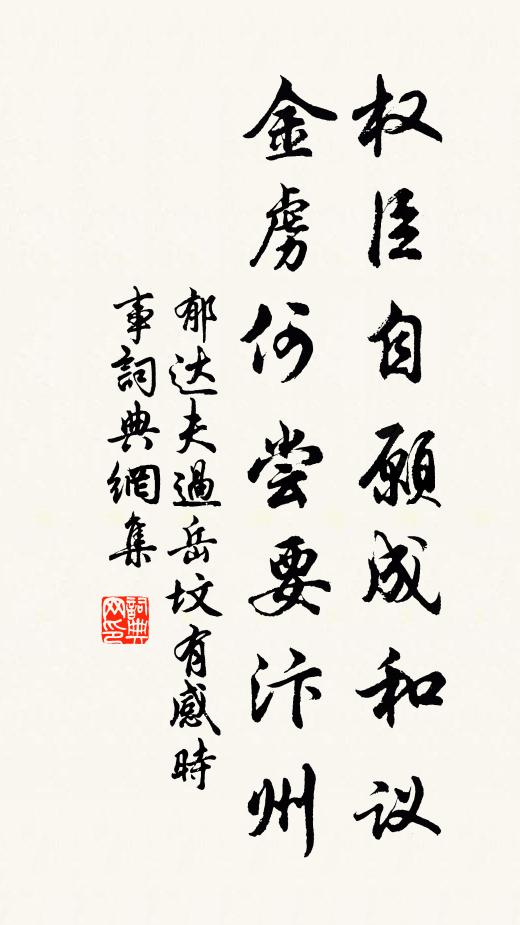 权臣自願成和议
金虏何尝要汴州
郁达夫過岳坟有感時
事詞典網集
詞典网印